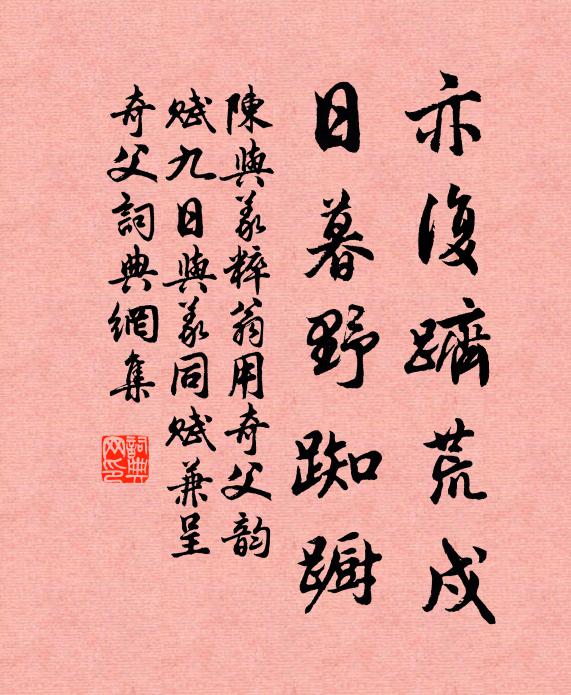 亦復躋荒戍
日暮野踟躕
陳與義粹翁用奇父韵
賦九日與義同賦兼呈
奇父詞典網集
詞典网印